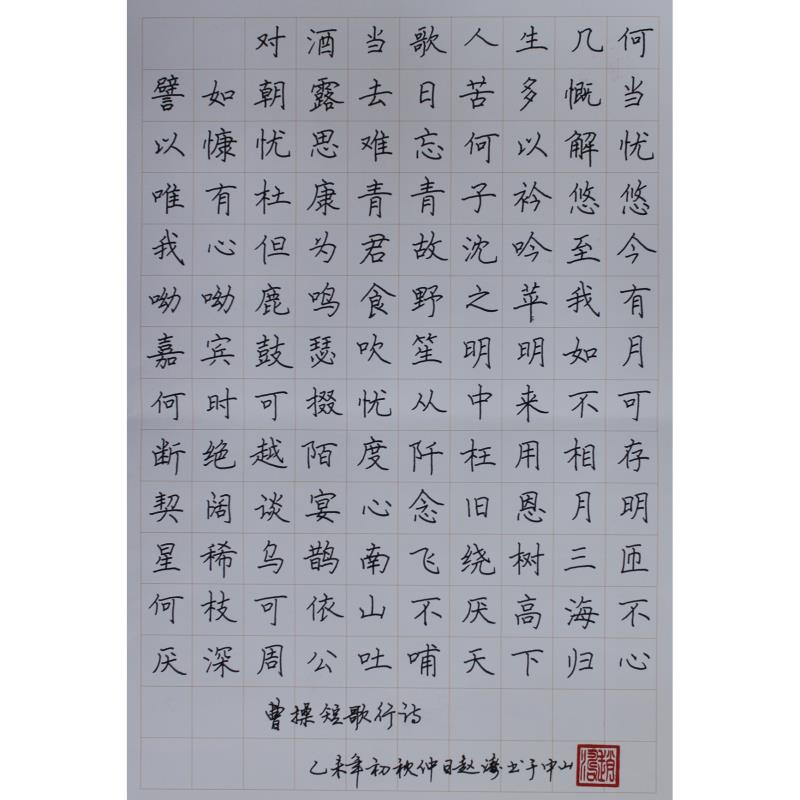 对酒当歌人生几何
譬如朝露去日苦多慨当
以慷忧思难忘何以解忧
唯有杜康青青子衿悠悠
我心但为君故沈吟至今
呦呦鹿鸣食野之苹我有
嘉宾鼓瑟吹笙明明如月
何时可掇忧从中来不可
断绝越陌度阡枉用相存
契阔谈宴心念旧恩月明
星稀乌鹊南飞绕树三匝
何枝可依山不厌高海不
厌深周公吐哺天下归心
曹操短歌行诗
乙未年初秋仲日赵涛书于中山
赵涛